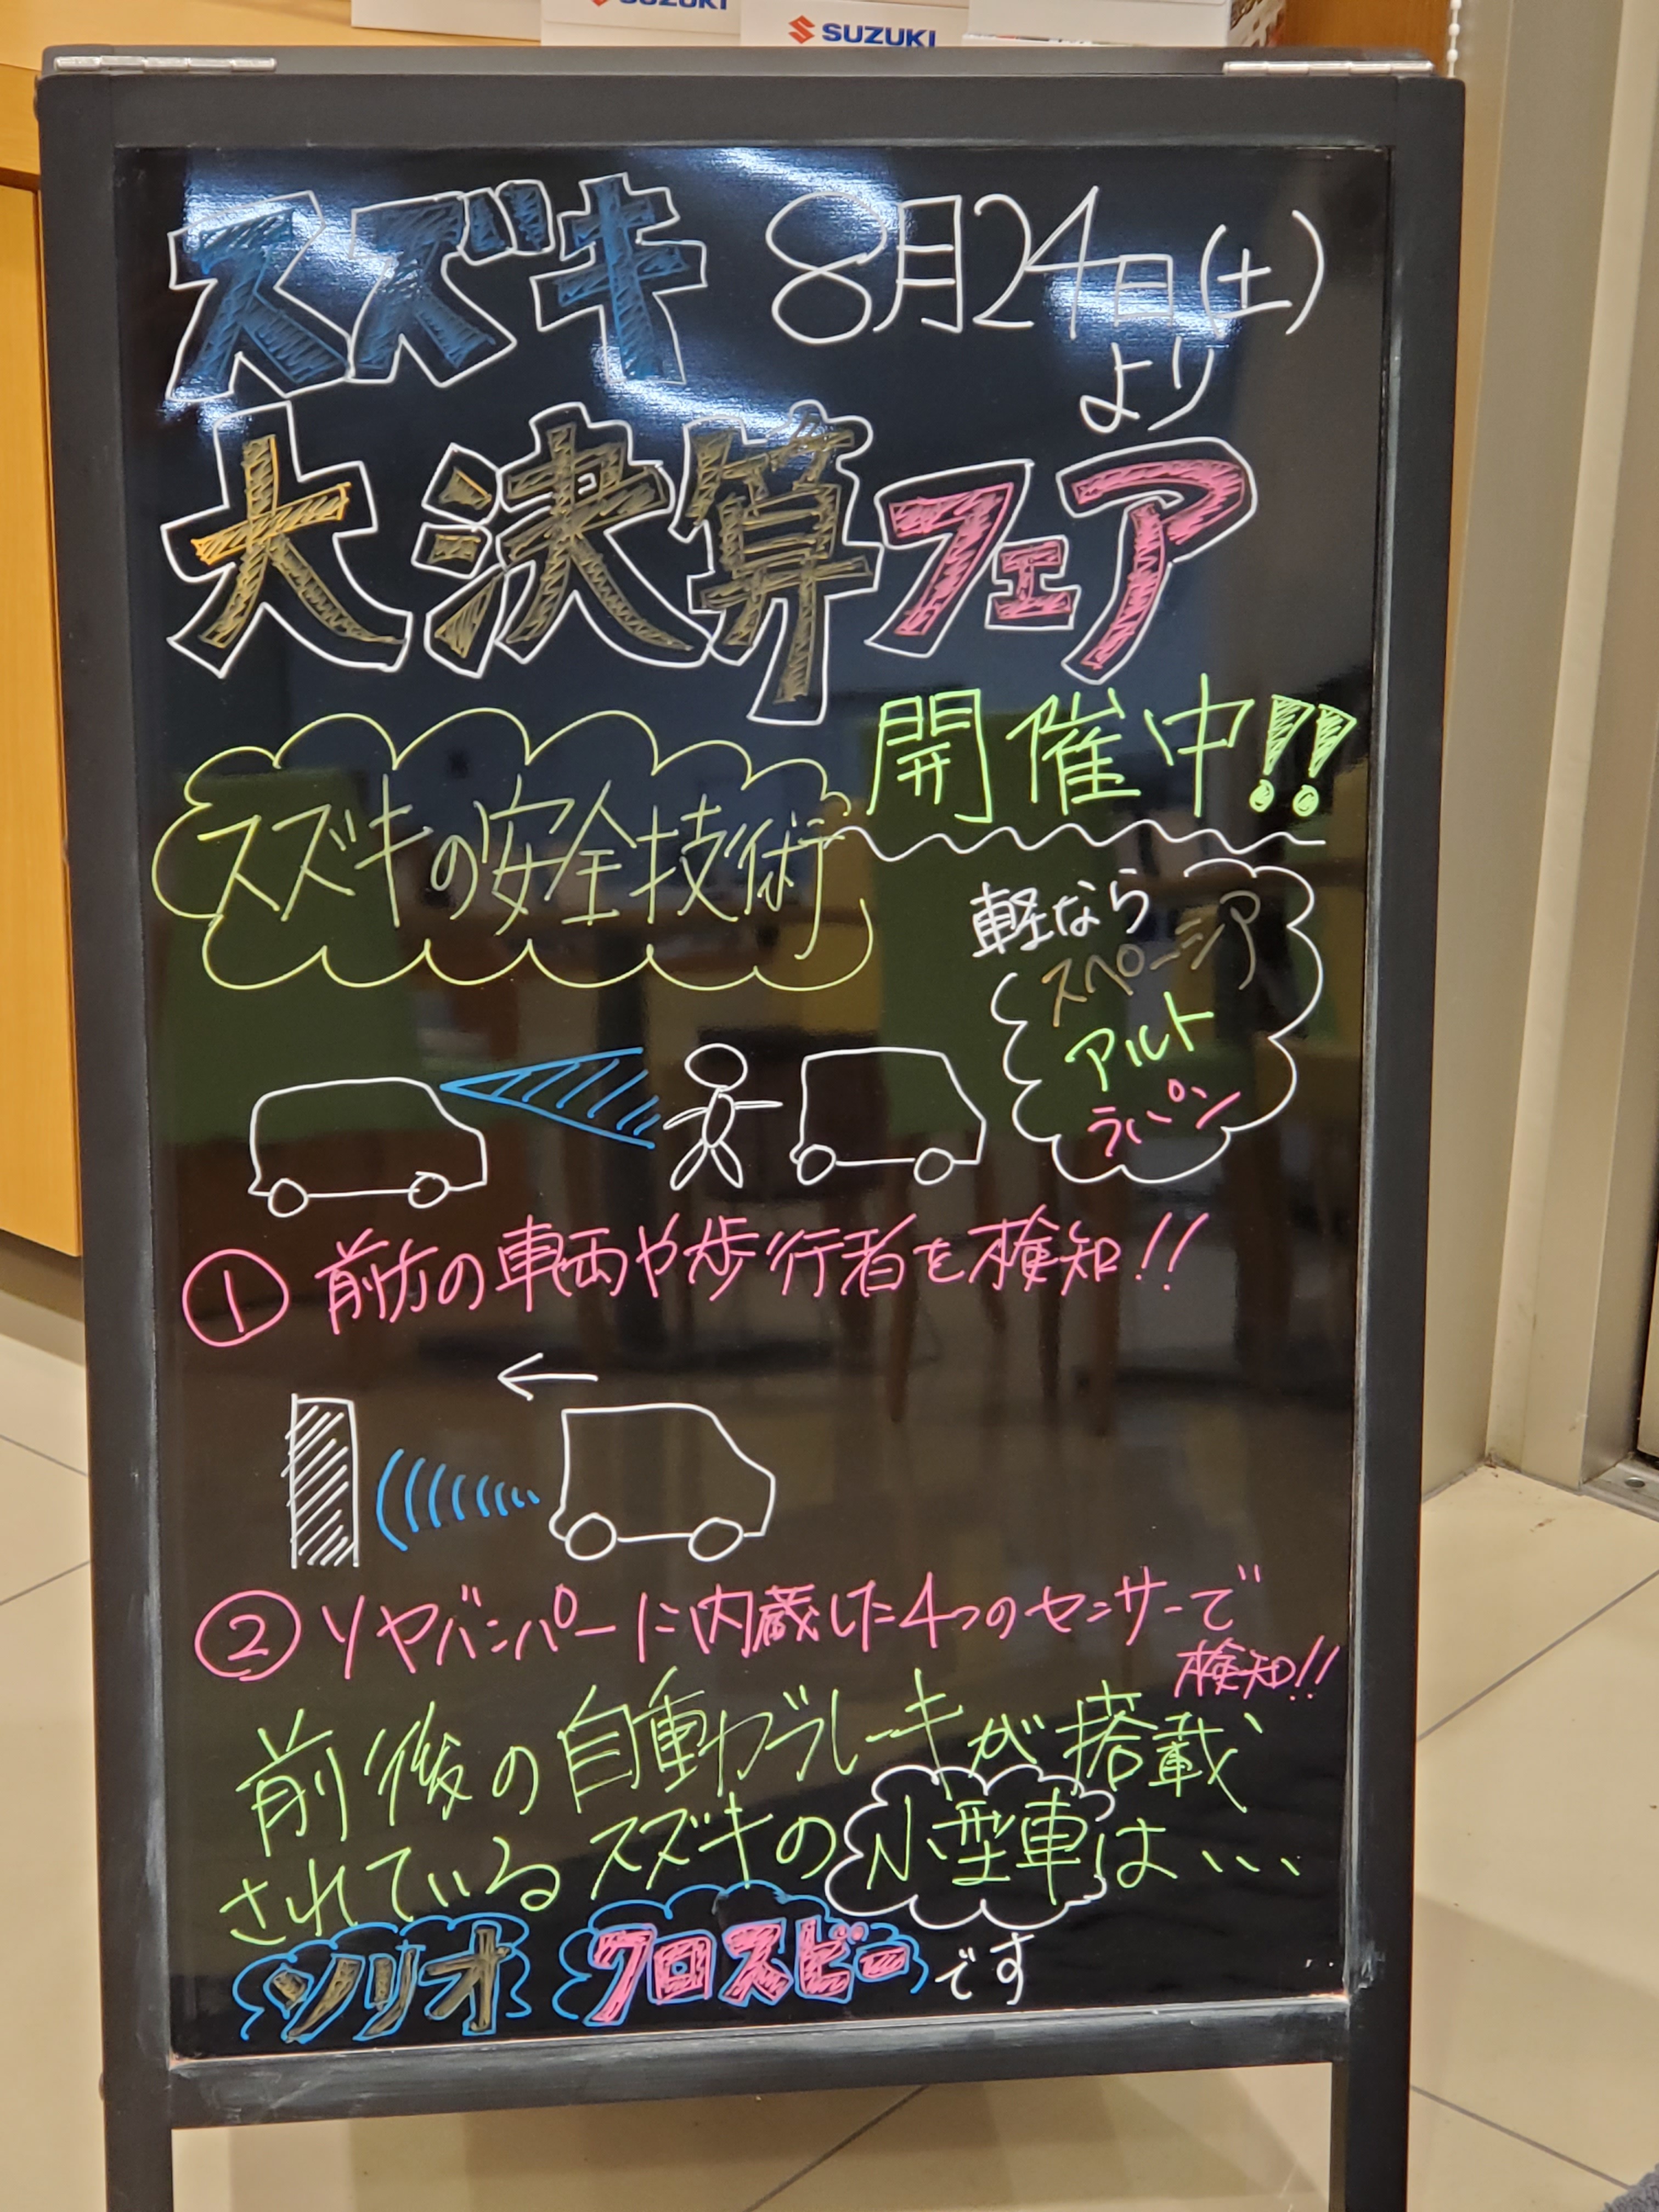 SUZUKI
SUZUKI
スズキ 8月24日(土)
より
大決算フェア
開催中!!
スズキの安全技術
軽なら
スペーシア
アルト
ラパン
① 前方の車両や歩行者を検知!!
② リヤバンパーに内蔵した4つのセンサーで
検知!!
前後の自動ブレーキが搭載
されているスズキの小型車は、、、
ソリオ クロスビーです